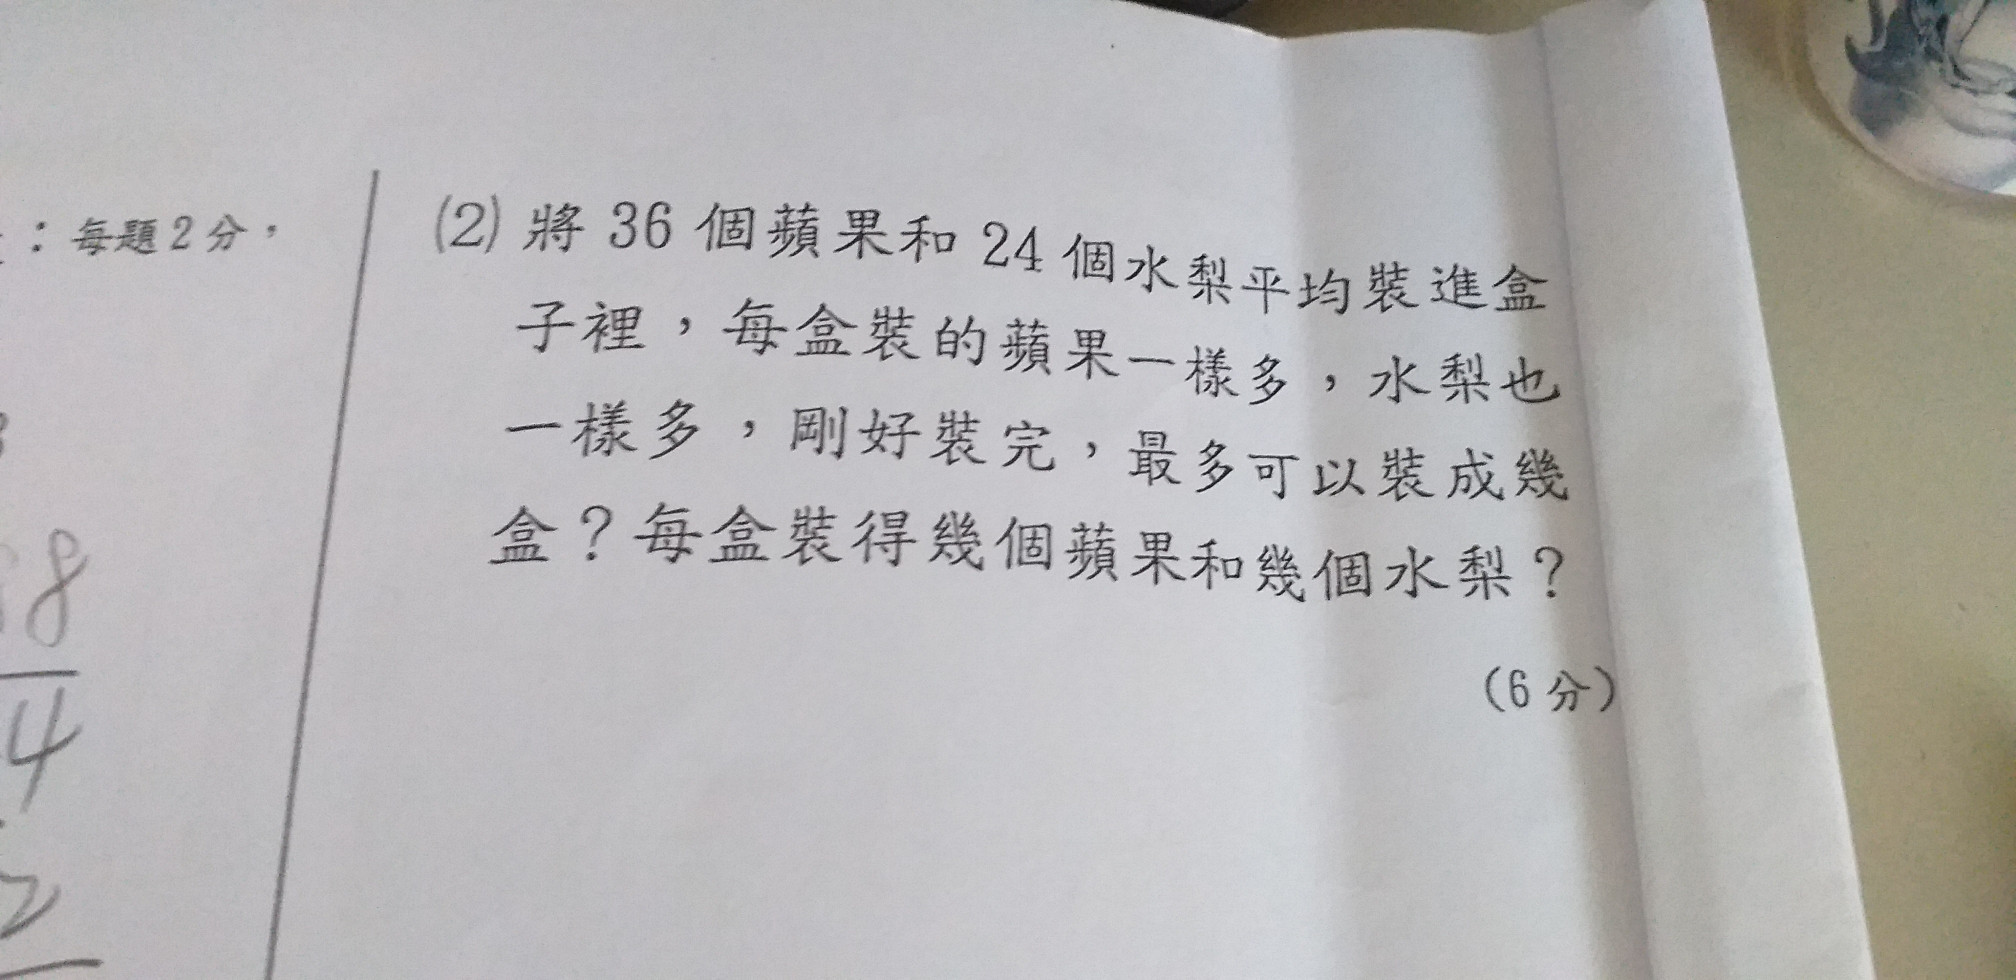 ：每題2分，
8
4
2
(2) 將 36 個蘋果和 24 個水梨平均裝進盒
子裡，每盒裝的蘋果一樣多，水梨也
一樣多，剛好裝完，最多可以裝成幾
盒？每盒裝得幾個蘋果和幾個水梨？
（6 分）